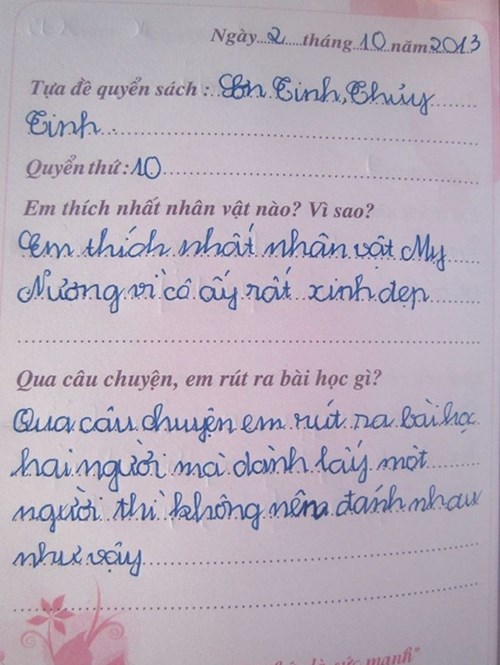 Ngày 2 tháng 10 năm 2013
Tựa đề quyển sách : Sơn Tinh, Thủy
Tinh.
Quyển thứ: 10
Em thích nhất nhân vật nào? Vì sao?
Em thích nhất nhân vật My
Nương vì cô ấy rất xinh đẹp
Qua câu chuyện, em rút ra bài học gì?
Qua câu chuyện em rút ra bài học
hai người mà dành lấy một
người thì không nên đánh nhau
như vậy
sức mạnh"